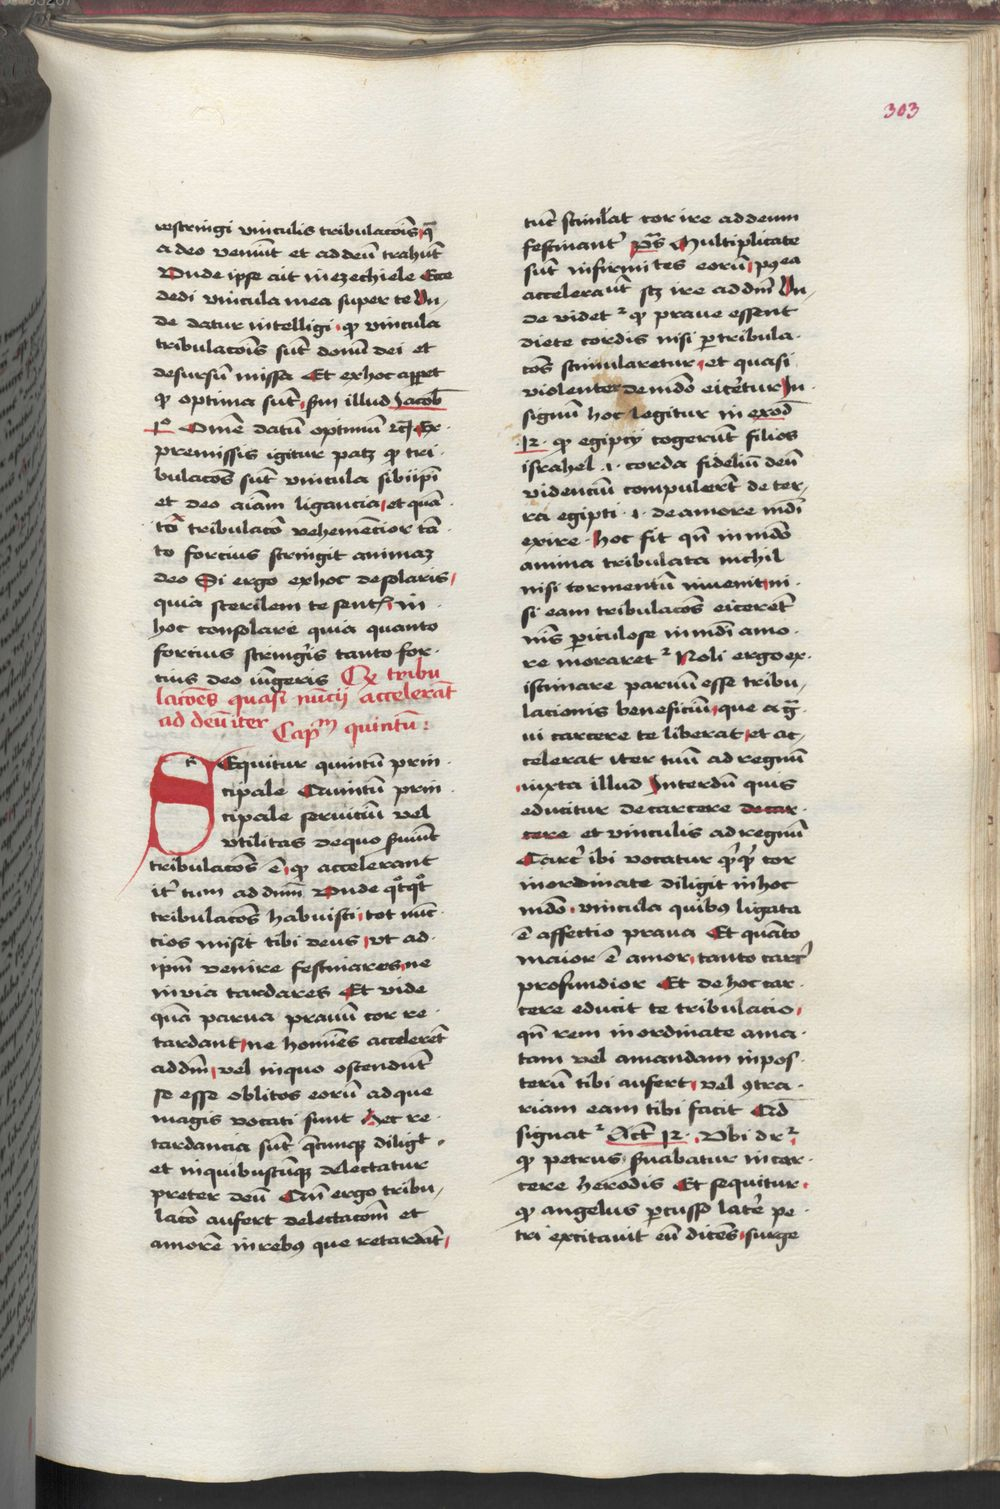 303
restringi vinculis tribulacōis q̄
a deo veniūt et ad deū trahūt
Vnde ipse ait in ezechiele Ecce
dedi vincula mea super te Vn-
de datur intelligi qꝫ vincula
tribulacōis sūt donū dei et
desursū missa Et ex hoc apparet
qꝫ optima sūt sm̄ illud Jacob̄
1º Omē datū optimū rc̄ Ex
premissis igitur patꝫ qꝫ tri-
bulacōes sūt vincula sibiip̄i
et deo aīam ligancia et quā-
to tribulacō vehemēcior tā-
to forcius stringit animaꝫ
deo Si ergo ex hoc desolaris
quia sterilem te sentis in
hoc consolare quia quanto
forcius stringeris tanto for-
cius deo iūgeris Ex tribu
lacōes quasi nūcij accelerāt
ad deū iter Capm quintū :
SEquitur quintū prin-
cipale Quintū prin-
cipale seruiciū vel
vtilitas de quo s̄uiūt
tribulacōes ē qꝫ accelerant
it̄ tuum ad dnm̄ Vnde qͦtqͦt
tribulacōes habuisti tot nūc-
cios misit tibi deus vt ad
ip̄m venire festinares ne
in via tardares Et vide
quā parua prauū cor re-
tardant ne homīes accelerēt
ad dm̄ vel in quo ostendūt
se esse oblitos eorū ad que
magis vocati sunt Hec re-
tardancia sūt q̄cunqꝫ diligit
et in quibuscūqꝫ delectatur
preter deū Cum ergo tribu-
lacō aufert delectacōm et
amorē in rebꝫ que retardāt
tūc stimulat cor ire ad deum
festinanter pͣs Multiplicate
sūt infirmitates eorū p9ea
accelerauūt scꝫ ire ad dnm̄ Vn-
de videtᷣ qꝫ praue essent
diete cordis nisi p tribula-
cōes stimularetur et quasi
violenter de mūdo eicēretur In
signū hoc legitur in exod̄
12 qꝫ egiptij cogerūt filios
israhel .i. corda fideliū deū
videnciū compulerūt de ter-
ra egipti .i. de amore mūdi
exire Hoc fit qn̄ in mūdo
anima tribulata nichil
nisi tormentū inuenit ni-
si eam tribulacōes eicerēt
nīs piculose in mūdi amo-
re moraretᷣ Noli ergo ex-
istimare paruū esse tribu-
lacionis beneficiū que a g̃-
ui carcere te liberat et ac-
celerat iter tuū ad regnū
iuxta illud Interdū quis
educitur de carcere de car-
cere et vinculis ad regnū
Carc̄ ibi vocatur qꝫqꝫ cor
inordinate diligit in hoc
mūdo vincula quibꝫ ligata
ē affectio praua Et quāto
maior ē amor tanto carc̄
profundior Et de hoc car-
cere educit te tribulacio
qn̄ rem inordinate ama-
tam vel amandam in pos-
terū tibi aufert vel 9tra-
riam eam tibi facit Qd̄
signatᷣ Act̄ 12 Vbi drᷣ
qꝫ petrus s̄uabatur in car-
cere herodis Et sequitur
qꝫ angelus p̄cusso latē pe-
tri excitauit eū dicēs surge